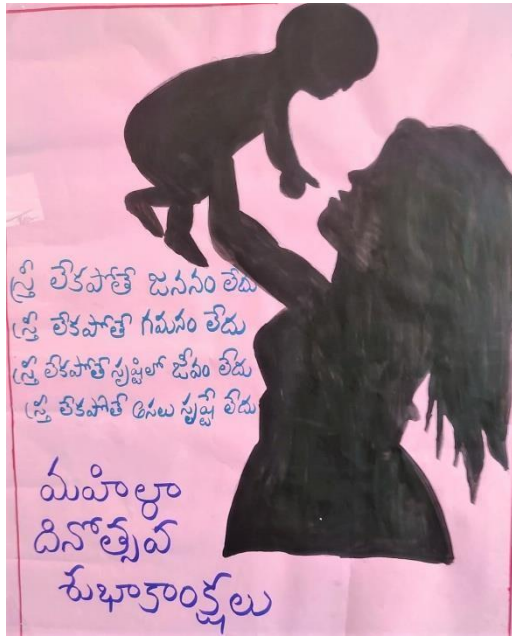 స్త్రీ లేకపోతే జననం లేదు
స్త్రీ లేకపోతే గమనం లేదు
స్త్రీ లేకపోతే సృష్టిలో జీవం లేదు
స్త్రీ లేకపోతే అసలు సృష్టే లేదు
మహిళా
దినోత్సవ
శుభాకాంక్షలు